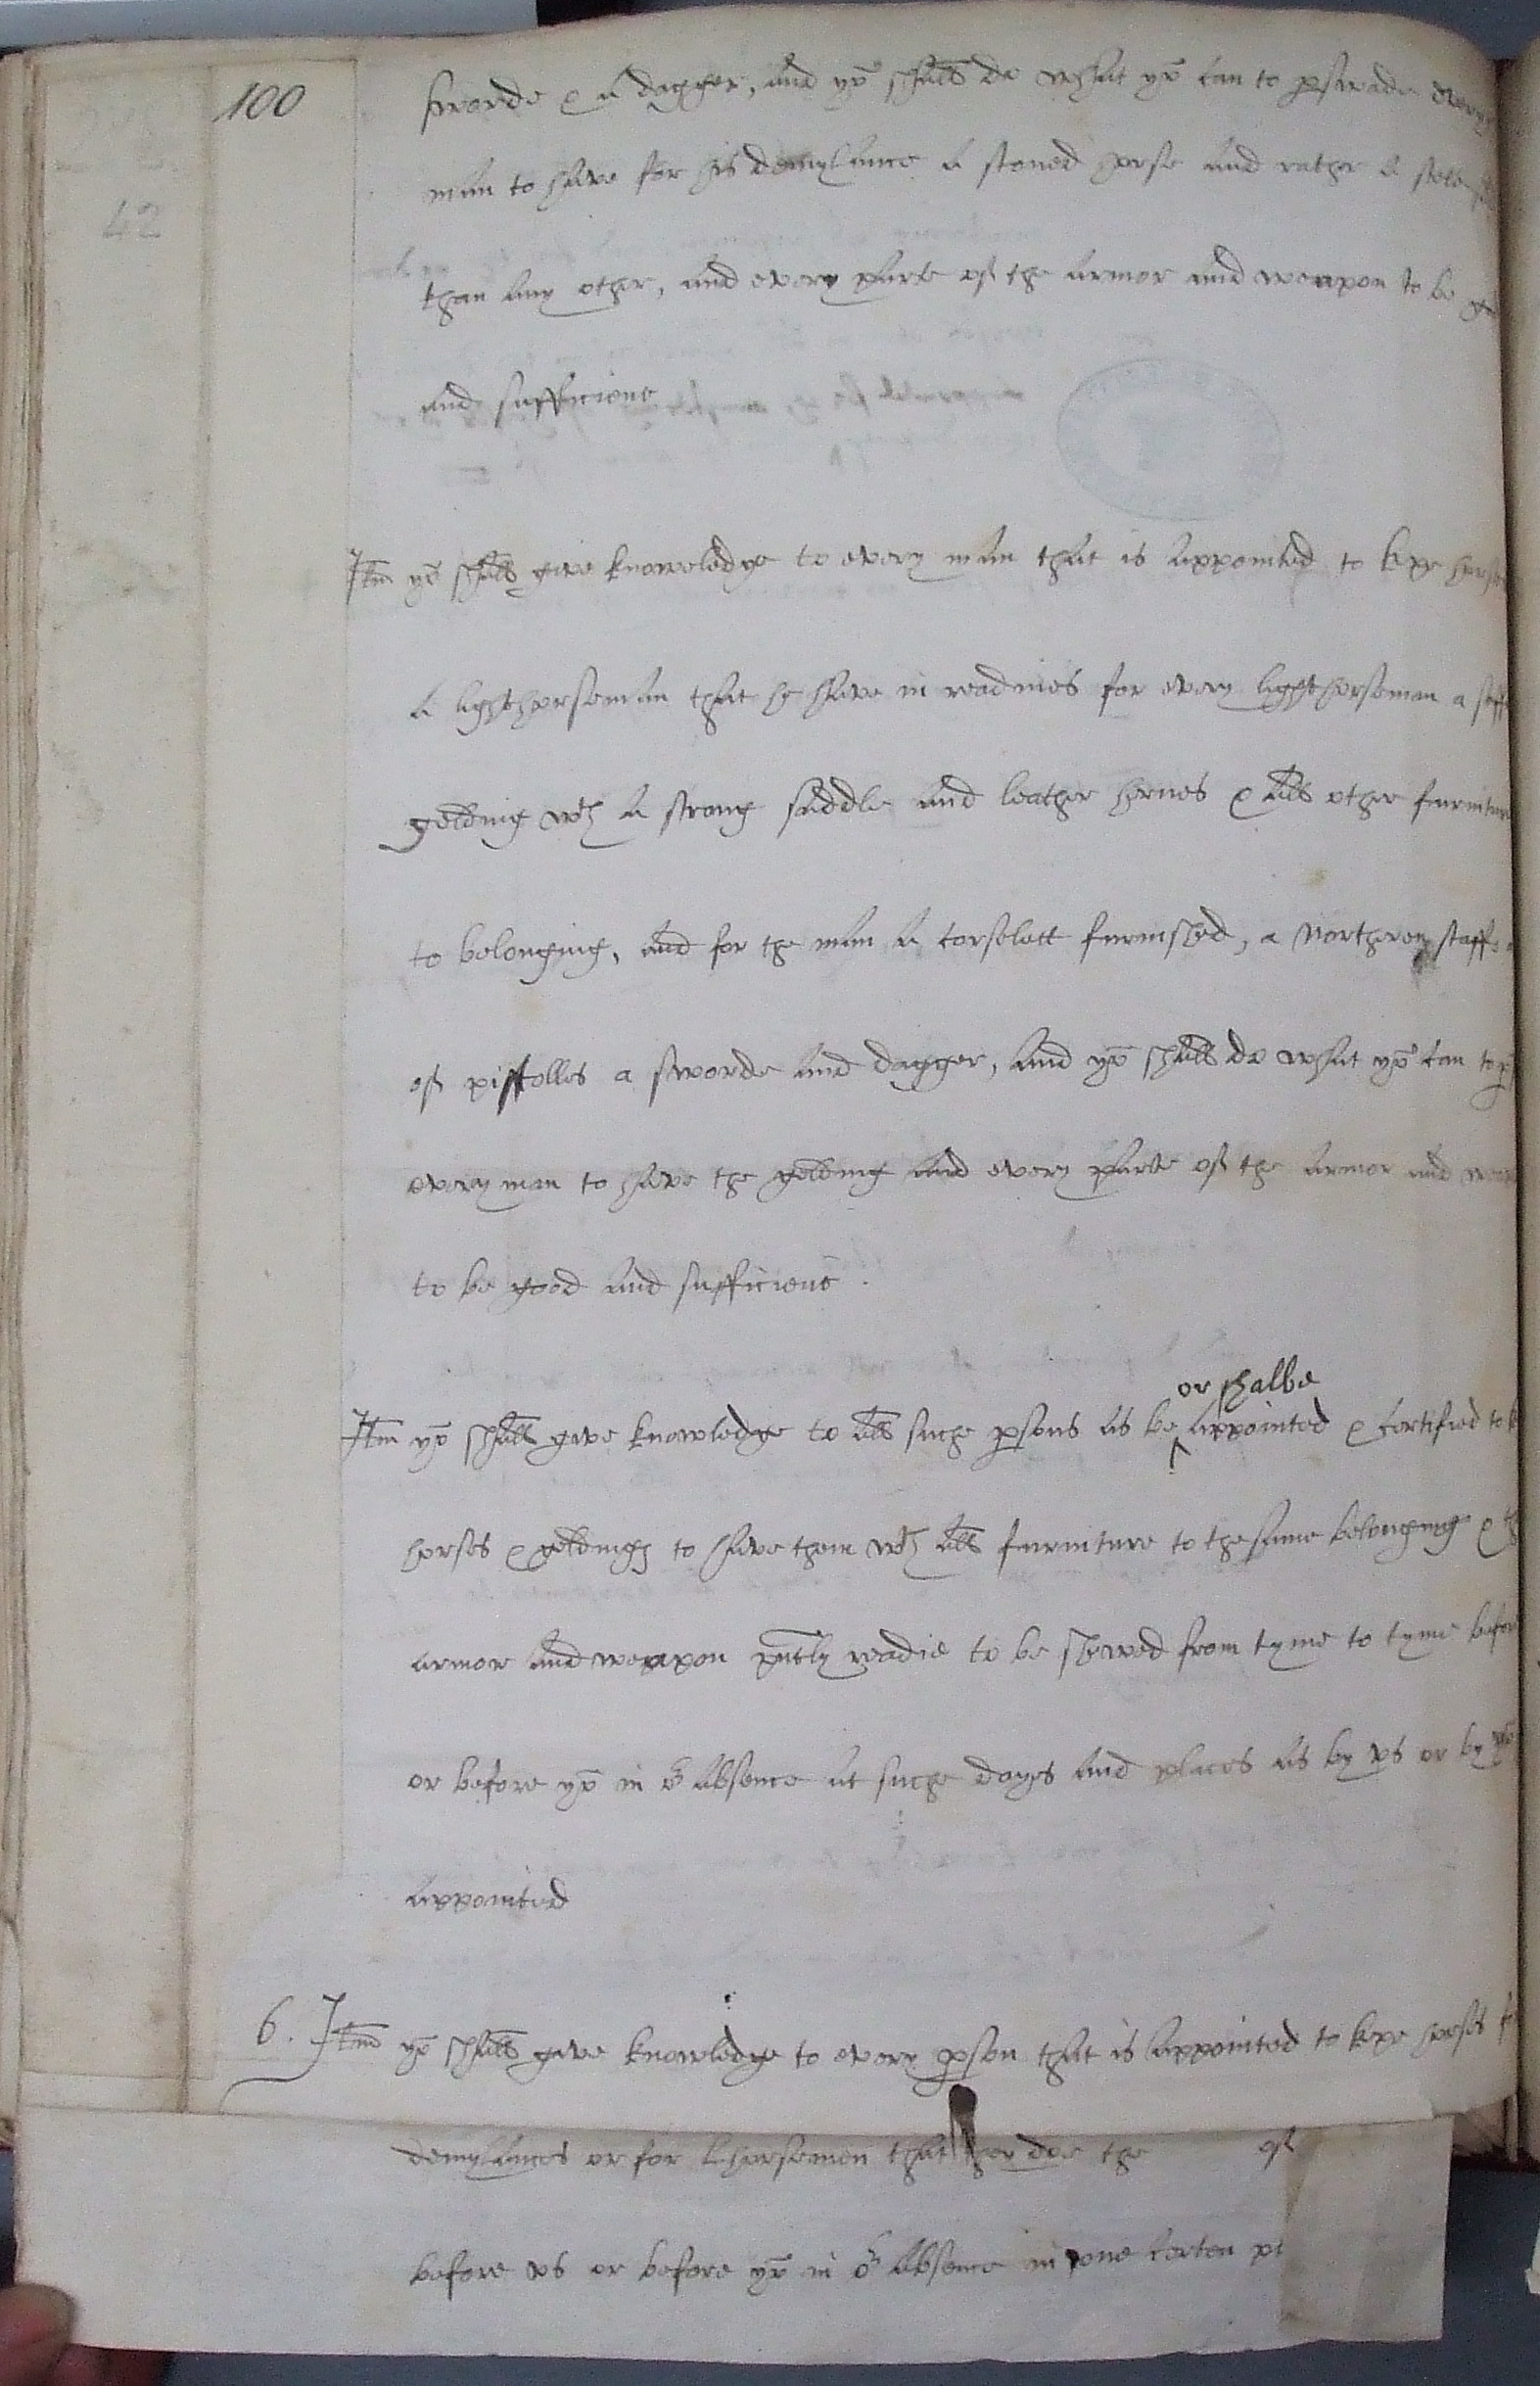 100
sworde & a dagger, and yo shall do what yo can to pswade every
42
man to have for his demylance a stoned horse and rather a stoned
than any other, and every parte of the armor and weapon to be
and sufficient
Itm yo shall geve knowledge to every man that is appointed to kepe
a lighthorseman that he have in readines for every lighthorseman a
gelding wth a strong saddle and leather hernes & all other furniture
to belonging, and for the man a corselett furnished, a Northeren staffe
of pistolles a sworde and dagger, and yo shall do what yo can to
every man to have the gelding and every parte of the armor and
to be good and sufficient.
or shalbe
Itm yo shall geve knowledge to all suche psons as be ^ appointed & certified to
horses & geldings to have them wth all furniture to the same belonging &
armor and weapon pntly readie to be shewed from tyme to tyme before
or before yo in or absence at suche dayes and places as by vs or by yo
appointed
6. Itm yo shall geve knowledge to every pson that is appointed to kepe horses
demylances or for l horsemen that they doe the of
before vs or before yo in or absence in one certen